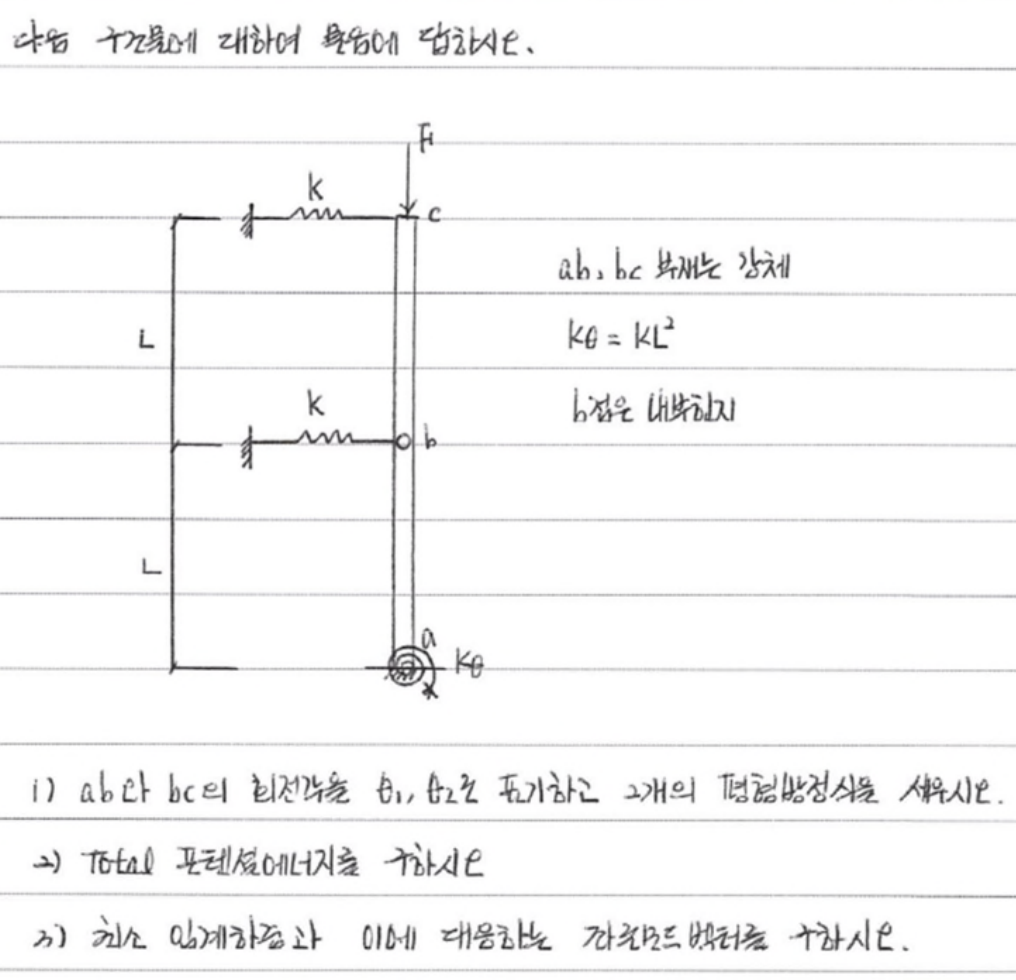 다음 구조물에 대하여 물음에 답하시오.
F
k
c
ab, bc 부재는 강체
L
kθ = KL²
k
b점은 내부힌지
b
L
a
kθ
1) ab와 bc의 회전각을 θ1, θ2로 표기하고 2개의 평형방정식을 세우시오.
2) Total 포텐셜에너지를 구하시오
3) 최소 임계하중과 이에 대응하는 좌굴모드벡터를 구하시오.